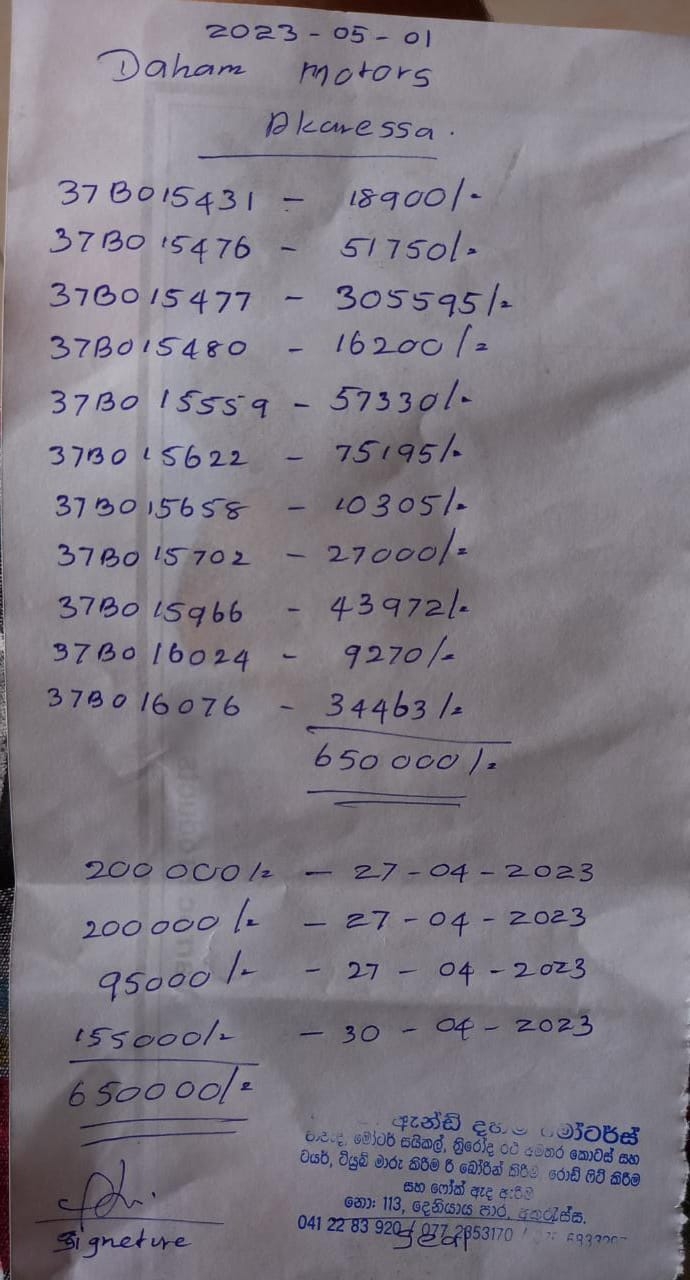 2023-05-01
Daham motors
Akuressa.
37B015431 - 18900/=
37B015476 - 51750/=
37B015477 - 305595/=
37B015480 - 16200/=
37B015559 - 57330/=
37B015622 - 75195/=
37B015658 - 10305/=
37B015702 - 27000/=
37B015966 - 43972/=
37B016024 - 9270/=
37B016076 - 34483/=
650000/=
200000/= - 27-04-2023
200000/= - 27-04-2023
95000/= - 27-04-2023
155000/= - 30-04-2023
650000/=
ඇන්ඩ් දහම් මෝටර්ස්
මෝටර් සයිකල්, ත්‍රීරෝද රථ අමතර කොටස් සහ
ටයර්, ටියුබ් මාරු කිරීම රී බෝරින් කිරීම රොඩ් ෆිට් කිරීම
සහ ෆෝක් ඇද ඇරීම
නො: 113, දෙනියාය පාර, අකුරැස්ස.
041 22 83 920 / 077 2853170 /
Signeture
Seal